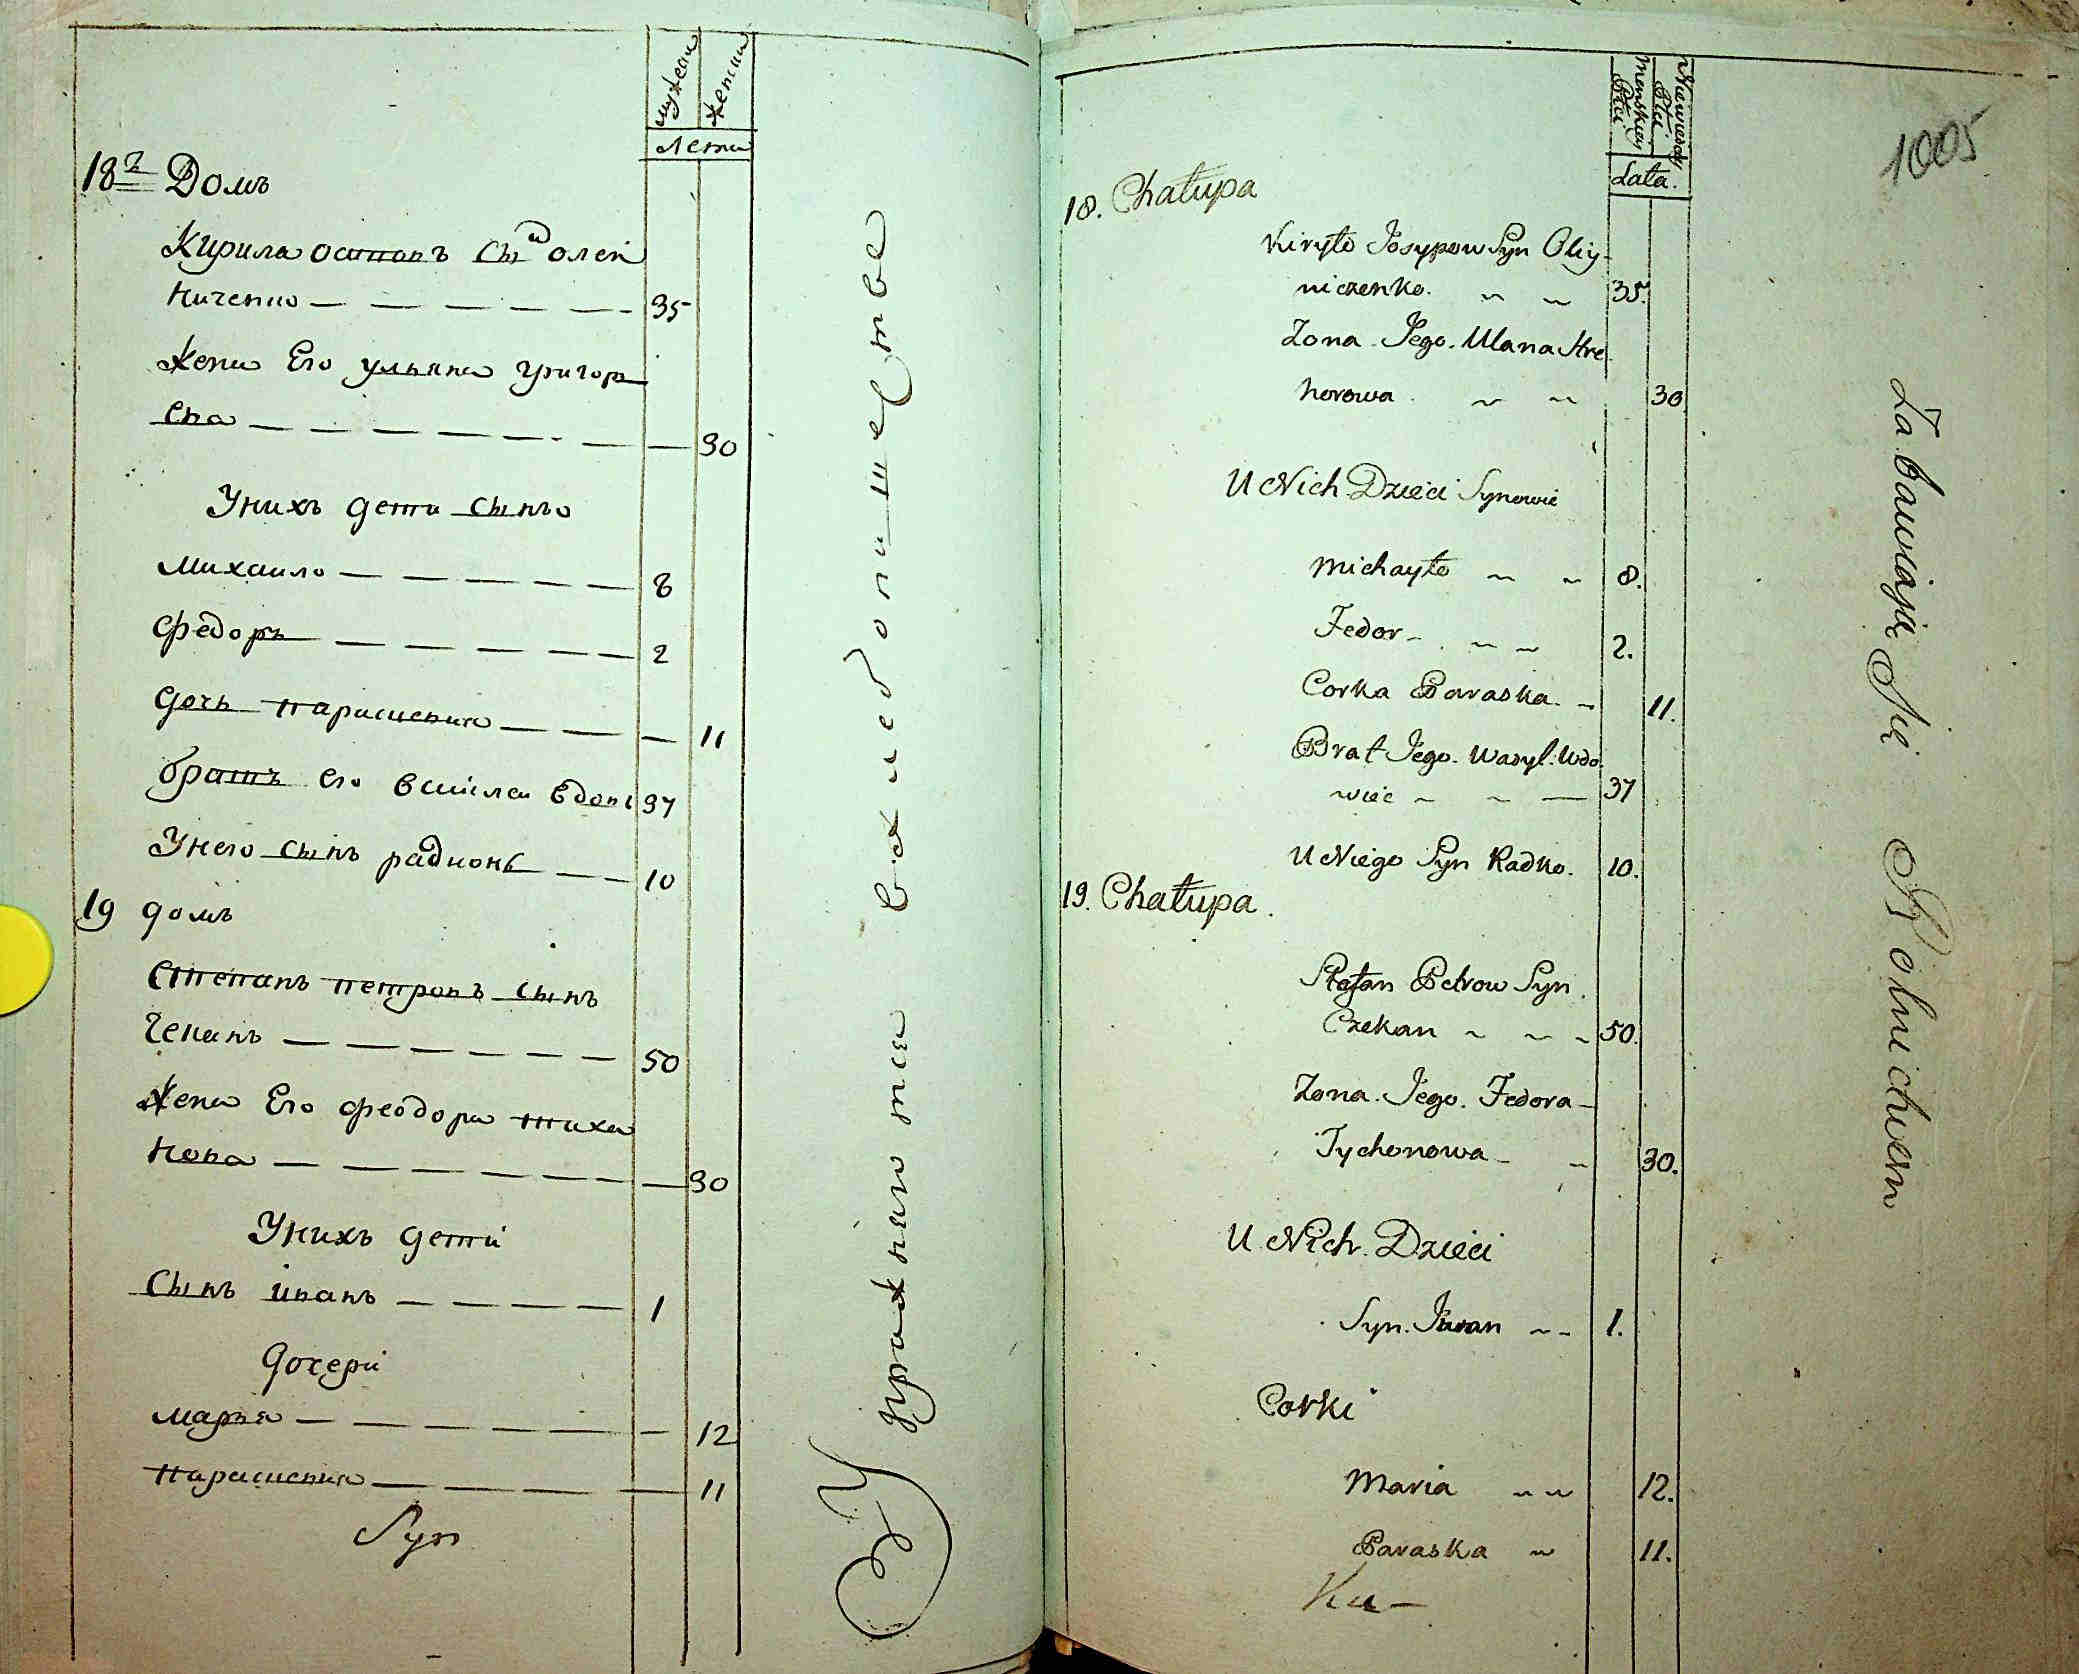 мужеск
женск
Лета
18й Домъ
Кирила осиповъ сынъ олей
ниченко — — — — — — 35
Жена Его ульяна григорь
ева — — — — — — — — 30
Унихъ дети сынъ
михаило — — — — — 8
федоръ — — — — — 2
дочь парасковия — — — — 11
братъ его василеи вдовъ 37
Унего сынъ радионъ — — 10
19 домъ
Степанъ петровъ сынъ
Чеканъ — — — — — — 50
Жена Его феодора тиха
нова — — — — — — — 30
Унихъ дети
сынъ иванъ — — — — 1
дочери
марья — — — — — — — 12
парасковия — — — — — 11
Syn
Упражняютца вхлебопашестве
Męskiey Płci
Niewieściey Płci
Lata.
1005
18. Chałupa
Kiryło Josypow Syn Oliy-
niczenko. 35.
Zona. Jego. Ulana Hre
horowa. 30
U Nich Dzieci Synowie
Michayło 8.
Fedor 2.
Corka Paraska. 11.
Brat Jego. Wasyl. Wdo
wiec 37
U Niego Syn Radko. 10.
19. Chałupa.
Stefan Petrow Syn.
Czekan 50.
Zona. Jego. Fedora
Tychonowa 30.
U Nich. Dzieci
Syn. Iwan 1.
Corki
Maria 12.
Paraska 11.
Ku-
Zabawiają Się Rolnictwem